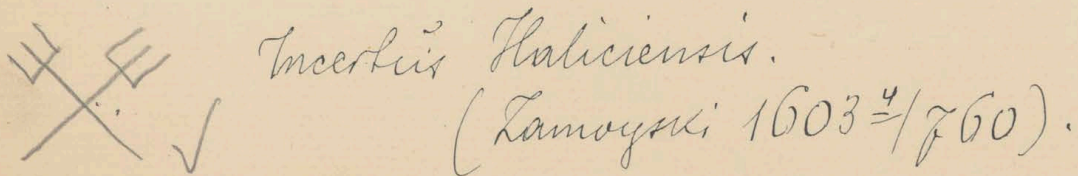 Incertus Haliciensis.
(Zamoyski 1603 4/760).